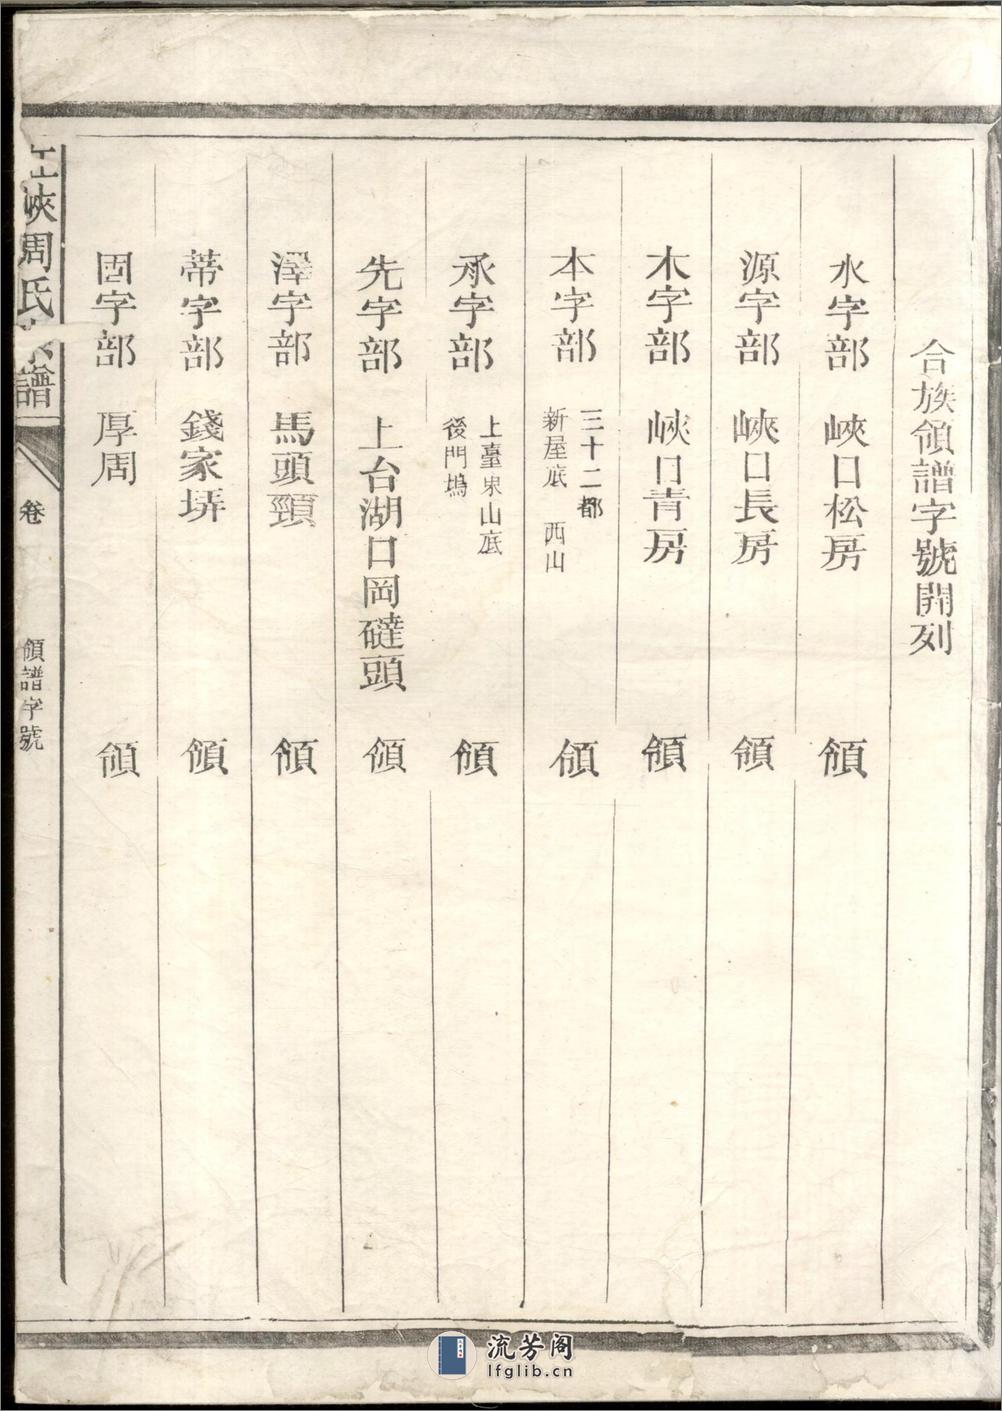 合族領譜字號開列
水字部 峽口松房 領
源字部 峽口長房 領
木字部 峽口青房 領
本字部 三十二都 新屋底 西山 領
承字部 上臺 山底 後門塢 領
先字部 上台湖口岡䃮頭 領
澤字部 馬頭頸 領
蒂字部 錢家垪 領
固字部 厚周 領
峽周氏 譜
卷
領譜字號
流芳阁
lfglib.cn